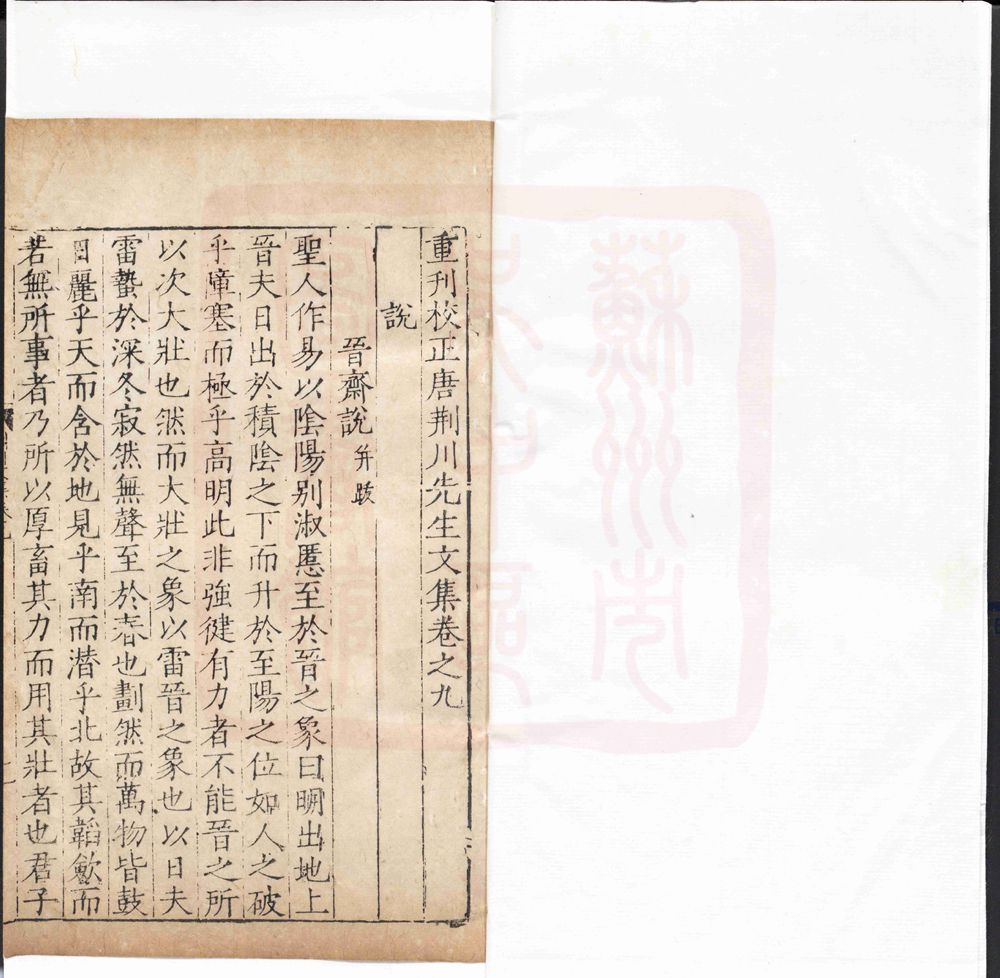 重刊校正唐荆川先生文集卷之九
說
晉齋說 并跋
聖人作易以陰陽别淑慝至於晉之象曰明出地上
晉夫日出於積陰之下而升於至陽之位如人之破
乎障塞而極乎高明此非強健有力者不能晉之所
以次大壯也然而大壯之象以雷晉之象也以日夫
雷蟄於深冬寂然無聲至於春也劃然而萬物皆鼓
日麗乎天而含於地見乎南而潜乎北故其韜歛而
若無所事者乃所以厚畜其力而用其壯者也君子
蘇州市